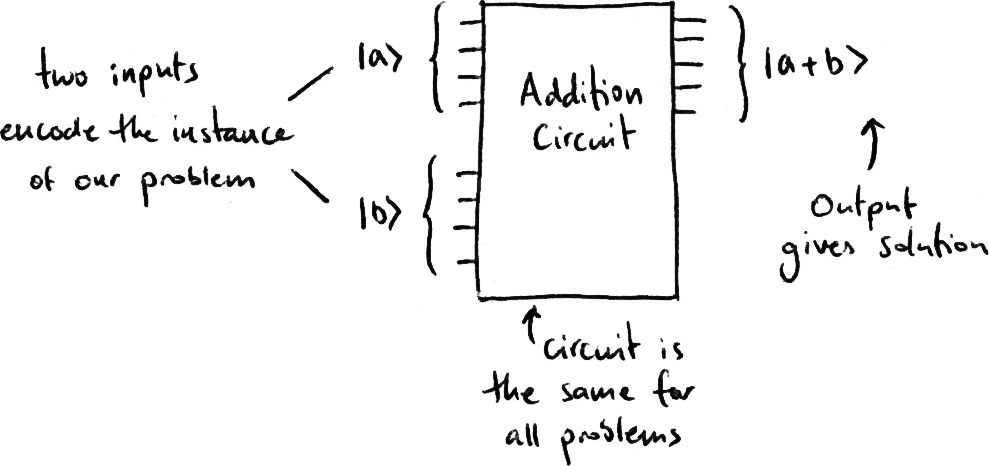 two inputs
encode the instance
of our problem
|a>
|b>
Addition
Circuit
|a+b>
Output
gives solution
circuit is
the same for
all problems